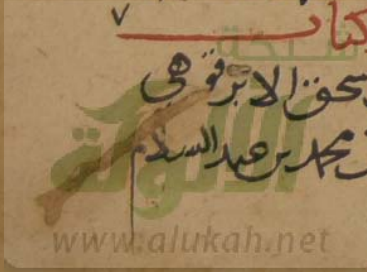 ٧
كتاب
سحق الابرقوهي
محمد بن عبد السلام
شبكة
الألوكة
www.alukah.net